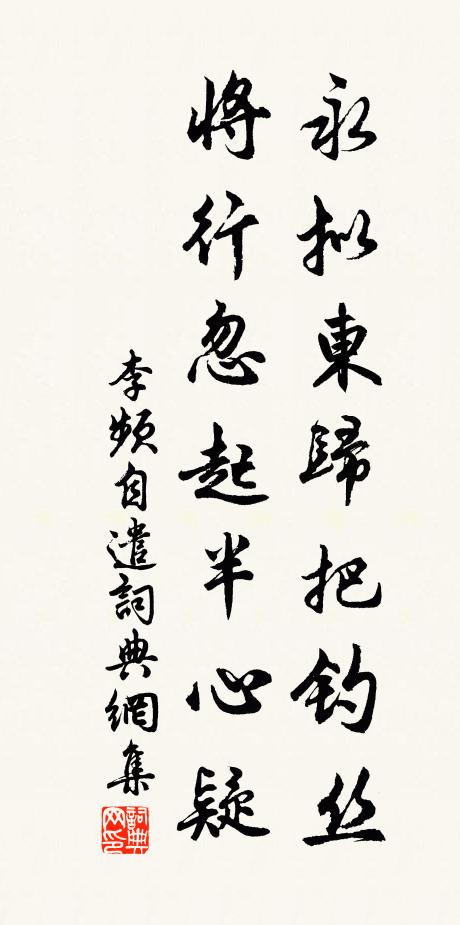 永拟東歸把钓丝
將行忽起半心疑
李频自遣詞典網集
詞典
网印